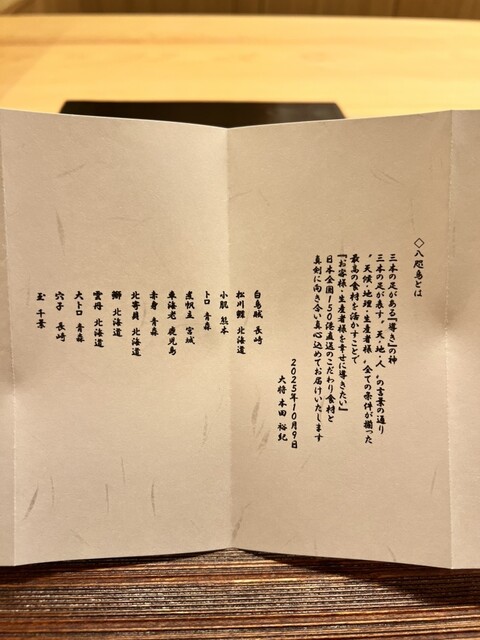 ◇八咫烏とは
三本の足がある『導き』の神
三本の足が表す〝天・地・人〟の言葉の通り
〝天候・地理・生産者様〟全ての条件が揃った
最高の食材を活かすことで
『お客様・生産者様を幸せに導きたい』
日本全国150港直送のこだわり食材と
真剣に向き合い真心込めてお届けいたします
2025年10月9日
大将 本田 裕紀
白烏賊 長崎
松川鰈 北海道
小肌 熊本
トロ 青森
煮帆立 宮城
車海老 鹿児島
赤身 青森
北寄貝 北海道
鰤 北海道
雲丹 北海道
大トロ 青森
穴子 長崎
玉 千葉